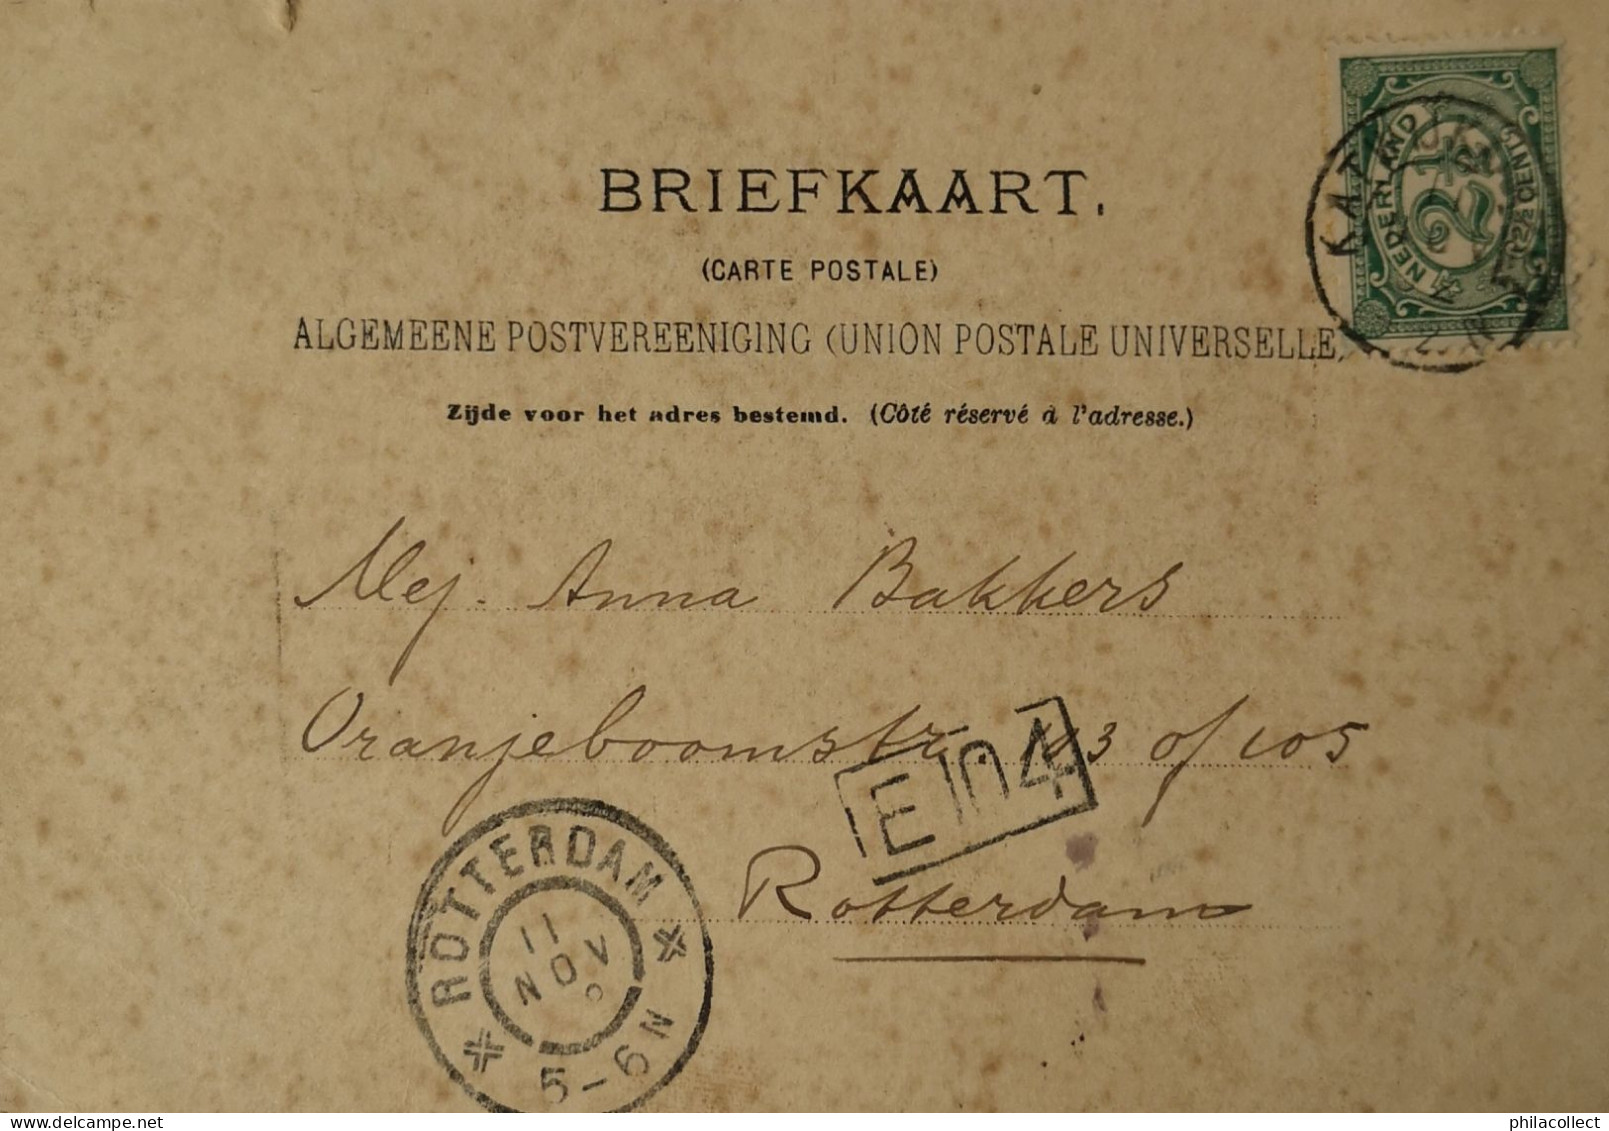 BRIEFKAART.
(CARTE POSTALE)
ALGEMEENE POSTVEREENIGING (UNION POSTALE UNIVERSELLE)
Zijde voor het adres bestemd. (Côté réservé à l'adresse.)
NEDERLAND
2½
2½ CENTS
KAT
Mej. Anna Bakkers
Oranjeboomstr. 103 of 105
E 104
Rotterdam
ROTTERDAM
11
NOV
5-6N
delcampe.net
philacollect